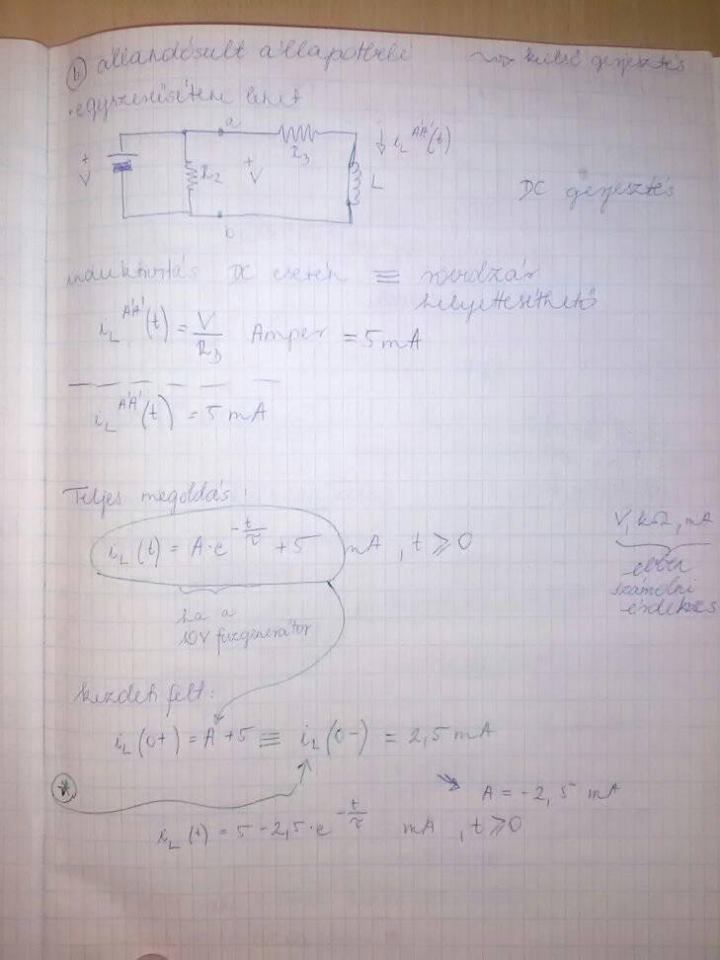 b) állandósult állapotbeli ~> külső gerjesztés
• egyszerűsíteni lehet
a
+ V R2 + V R3 ↓ iL^ÁÁ(t) L
DC gerjesztés
b
induktivitás DC esetén ≡ rövidzár
helyettesíthető
iL^ÁÁ(t) = V/R3 Amper = 5 mA
iL^ÁÁ(t) = 5 mA
Teljes megoldás:
iL(t) = A·e^(-t/τ) + 5 mA, t ≥ 0
V, kΩ, mA
ebben
számolni
érdekes
ha a
10V
kezdeti felt:
iL(0+) = A + 5 ≡ iL(0-) = 2,5 mA
* A = -2,5 mA
iL(t) = 5 - 2,5·e^(-t/τ) mA, t ≥ 0